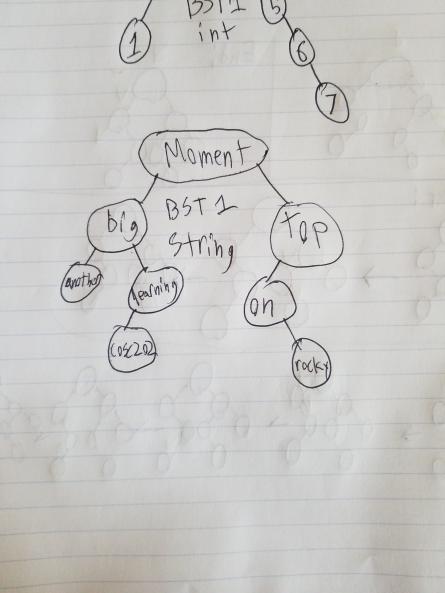 BST1
5
1
int
6
7
Moment
big
BST 1
top
String
another
learning
on
cosc202
rocky